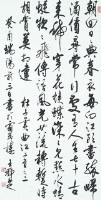 朝回日日典春衣每日江頭盡醉
歸酒債尋常行處有人生七十古
来稀穿花蛺蝶深深見點水蜻
蜓款款飛傳語風光共流轉暫時
相賞莫相違
杜子美曲江詩
端陽前三日書於